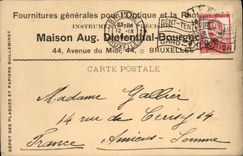 Fournitures générales pour l'Optique et la Photo
INSTRUMENTS
Maison Aug. Diefenthal-Bourgeois
44, Avenue du Midi, 44, BRUXELLES
CARTE POSTALE
Madame Gallier
14 rue de Cerisy 14
France Amiens-Somme
DÉPÔT DES PLAQUES ET PAPIERS GUILLEMINOT